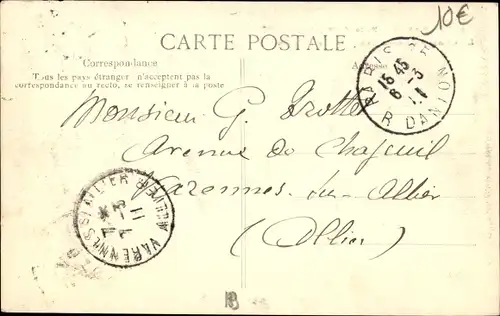 10€
CARTE POSTALE
Correspondance
Tous les pays étranger n'acceptent pas la
correspondance au recto, se renseigner à la poste
Adresse
PARIS 25
R DANTON
15 45
8 - 3
11
Monsieur G. Trotte
Avenue de Chazeuil
Varennes-su-Allier
(Allier)
VARENNES S/ ALLIER
7 - 3
11